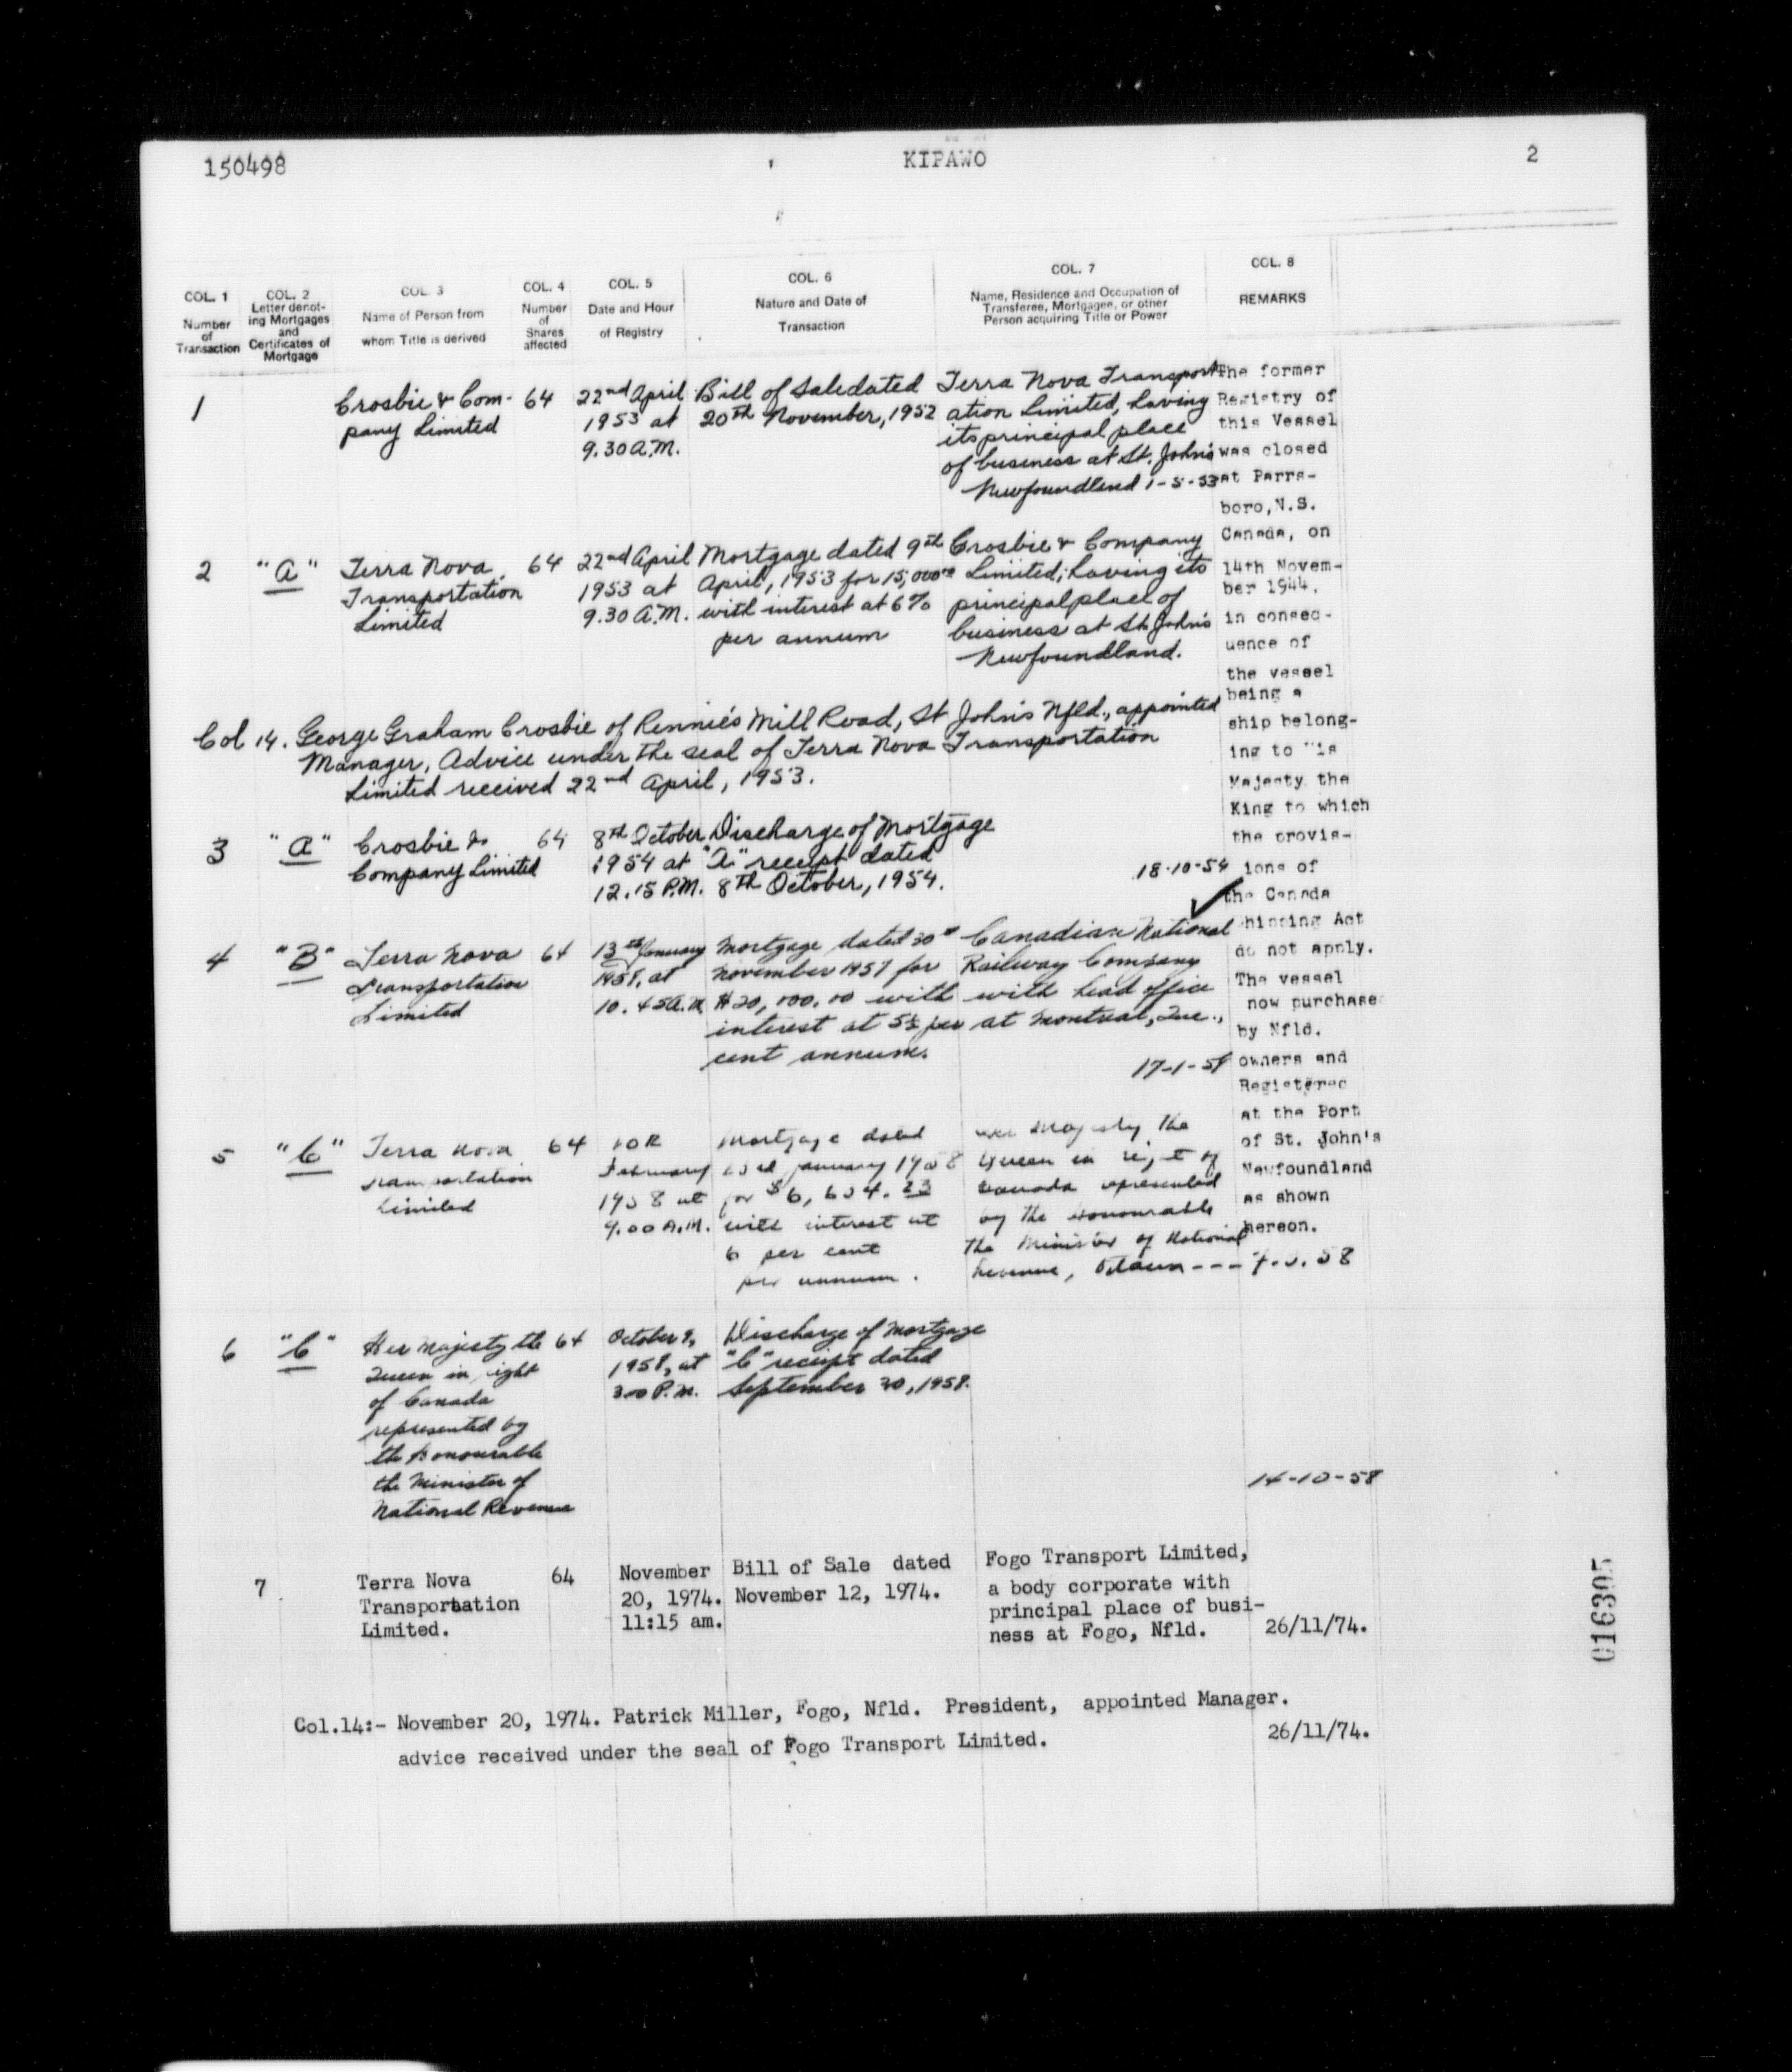 150498
KIPAWO
2
COL. 1
Number
of
Transaction
COL. 2
Letter denot-
ing Mortgages
and
Certificates of
Mortgage
COL. 3
Name of Person from
whom Title is derived
COL. 4
Number
of
Shares
affected
COL. 5
Date and Hour
of Registry
COL. 6
Nature and Date of
Transaction
COL. 7
Name, Residence and Occupation of
Transferee, Mortgagee, or other
Person acquiring Title or Power
COL. 8
REMARKS
1
Crosbie & Com-
pany Limited
64
22nd April
1953 at
9.30 A.M.
Bill of Sale dated
20th November, 1952
Terra Nova Transport-
ation Limited, having
its principal place
of business at St. John's
Newfoundland 1-5-53
2
"A"
Terra Nova
Transportation
Limited
64
22nd April
1953 at
9.30 A.M.
Mortgage dated 9th
April, 1953 for 15,000.00
with interest at 6%
per annum
Crosbie & Company
Limited, having its
principal place of
business at St. John's
Newfoundland.
Col 14. George Graham Crosbie of Rennie's Mill Road, St John's Nfld., appointed
Manager, Advice under the seal of Terra Nova Transportation
Limited received 22nd April, 1953.
3
"A"
Crosbie &
Company Limited
64
8th October
1954 at
12.15 P.M.
Discharge of Mortgage
"A" receipt dated
8th October, 1954.
18-10-54
4
"B"
Terra Nova
Transportation
Limited
64
13th January
1958, at
10.45 A.M.
Mortgage dated 30th
November 1957 for
$20,000.00 with
interest at 5½ per
cent annum.
Canadian National
Railway Company
with head office
at Montreal, Que.,
17-1-58
5
"C"
Terra Nova
Transportation
Limited
64
10th
February
1958 at
9.00 A.M.
Mortgage dated
January 1958
for $6,634.23
with interest at
6 per cent
per annum.
Her Majesty the
Queen in right of
Canada represented
by the Honourable
the Minister of National
Revenue, Ottawa ---
58
6
"C"
Her Majesty the
Queen in right
of Canada
represented by
the Honourable
the Minister of
National Revenue
64
October 9,
1958, at
3.00 P.M.
Discharge of Mortgage
"C" receipt dated
September 30, 1958.
14-10-58
7
Terra Nova
Transportation
Limited.
64
November
20, 1974.
11:15 am.
Bill of Sale dated
November 12, 1974.
Fogo Transport Limited,
a body corporate with
principal place of busi-
ness at Fogo, Nfld.
26/11/74.
The former
Registry of
this Vessel
was closed
at Parrs-
boro, N.S.
Canada, on
14th Novem-
ber 1944.
in conseq-
uence of
the vessel
being a
ship belong-
ing to His
Majesty the
King to which
the provis-
ions of
the Canada
Shipping Act
do not apply.
The vessel
now purchase
by Nfld.
owners and
Registered
at the Port
of St. John's
Newfoundland
as shown
hereon.
Col.14:- November 20, 1974. Patrick Miller, Fogo, Nfld. President, appointed Manager.
advice received under the seal of Fogo Transport Limited.
26/11/74.
016305